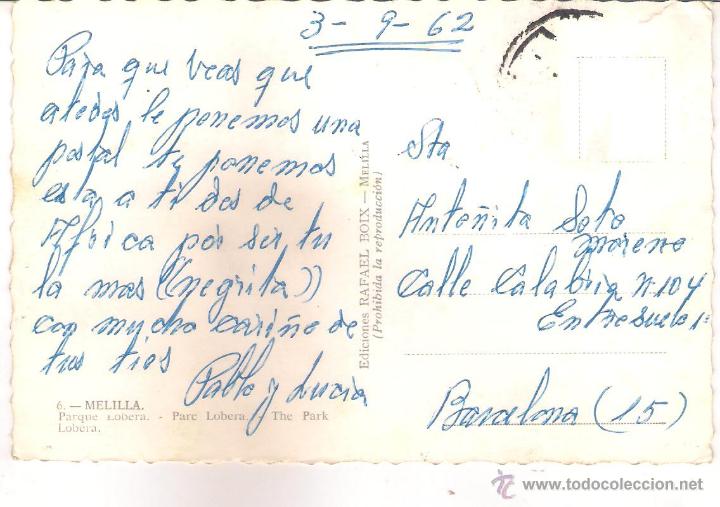 3-9-62
Para que veas que
a todos le ponemos una
postal te ponemos
esta a ti desde
Africa por ser tu
la mas ((negrita))
con mucho cariño de
tus tios
Pablo y Lucia
6. — MELILLA.
Parque Lobera. - Parc Lobera. - The Park
Lobera.
Ediciones RAFAEL BOIX — MELILLA
(Prohibida la reproducción)
Sta
Antoñita Soto
Moreno
Calle Calabria nº 104
Entresuelo 1ª
Barcelona (15)
www.todocoleccion.net